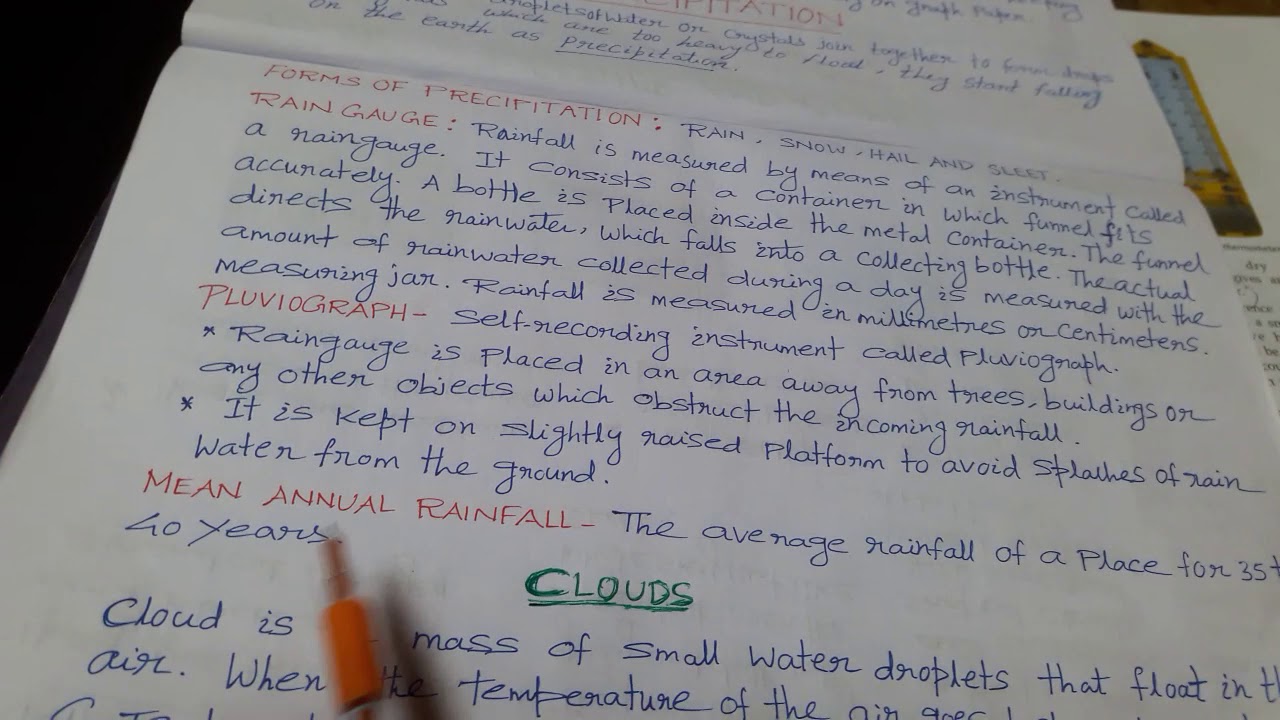 on graph Paper
PRECIPITATION
droplets of water or crystals join together to form drops
which are too heavy to float, they start falling
on the earth as Precipitation.
FORMS OF PRECIPITATION: RAIN, SNOW, HAIL AND SLEET.
RAIN GAUGE: Rainfall is measured by means of an instrument called
a raingauge. It consists of a container in which funnel fits
accurately. A bottle is Placed inside the metal container. The funnel
directs the rainwater, which falls into a collecting bottle. The actual
amount of rainwater collected during a day is measured with the
measuring jar. Rainfall is measured in millimetres or centimeters.
PLUVIOGRAPH- Self-recording instrument called Pluviograph.
* Raingauge is placed in an area away from trees, buildings or
any other objects which obstruct the incoming rainfall.
* It is kept on slightly raised Platform to avoid splashes of rain
water from the ground.
MEAN ANNUAL RAINFALL- The average rainfall of a Place for 35
40 years.
CLOUDS
Cloud is mass of small water droplets that float in
air. When the temperature of the air